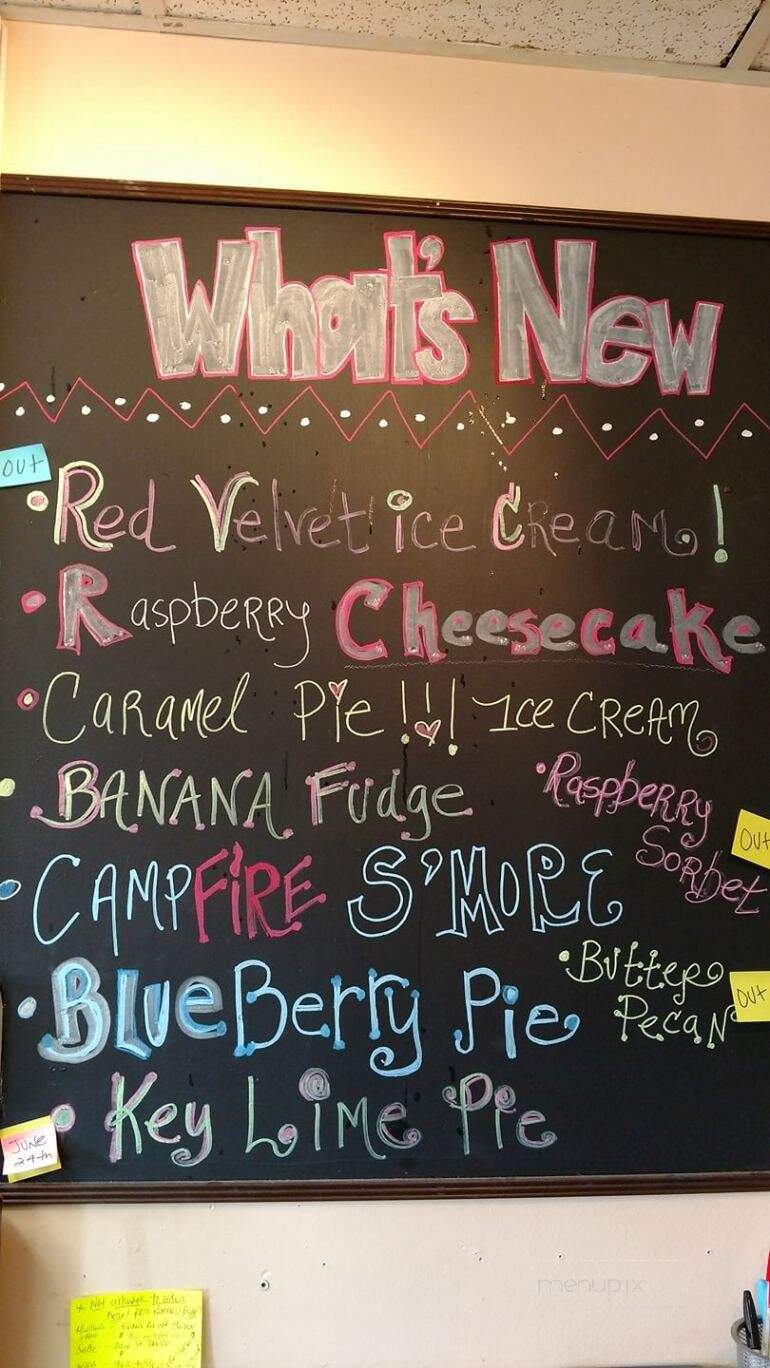 What's New
OUT
Red Velvet ice CReam.!
Raspberry Cheesecake
CaRamel Pie!!! Ice CREAM
BANANA Fudge
Raspberry
Sorbet
OUT
CAMPFiRE S'MORE
BlueBerry Pie
Butter
Pecan
OUT
Key Lime Pie
JUNE
24th
* Not allowed to
menupix